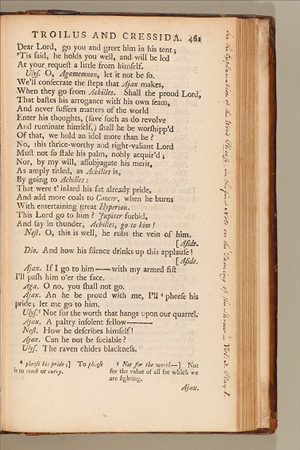 TROILUS AND CRESSIDA. 461
Dear Lord, go you and greet him in his tent;
'Tis said, he holds you well, and will be led
At your request a little from himself.
Ulyſ. O, Agamemnon, let it not be ſo.
We'll conſecrate the ſteps that Ajax makes,
When they go from Achilles. Shall the proud Lord,
That baſtes his arrogance with his own ſeam,
And never ſuffers matters of the world
Enter his thoughts, (ſave ſuch as do revolve
And ruminate himſelf,) ſhall he be worſhipp'd
Of that, we hold an idol more than he?
No, this thrice-worthy and right-valiant Lord
Muſt not ſo ſtale his palm, nobly acquir'd;
Nor, by my will, aſſubjugate his merit,
As amply titled, as Achilles is,
By going to Achilles:
That were t' inlard his fat already pride,
And add more coals to Cancer, when he burns
With entertaining great Hyperion.
This Lord go to him? Jupiter forbid,
And ſay in thunder, Achilles, go to him!
Neſt. O, this is well, he rubs the vein of him.
[Aſide.
Dio. And how his ſilence drinks up this applauſe!
[Aſide.
Ajax. If I go to him—with my armed fiſt
I'll paſh him o'er the face.
Aga. O no, you ſhall not go.
Ajax. An he be proud with me, I'll pheeſe his
pride; let me go to him.
Ulyſ. Not for the worth that hangs upon our quarrel.
Ajax. A paltry inſolent fellow—
Neſt. How he deſcribes himſelf!
Ajax. Can he not be ſociable?
Ulyſ. The raven chides blackneſs.
pheeſe his pride;] To pheeſe
is to comb or curry.
Not for the worth—] Not
for the value of all for which we
are fighting.
Ajax.
See the Explanation of the Word Pheeſe in the first Note on the Taming of the Shrew Vol. 3. Page 1.